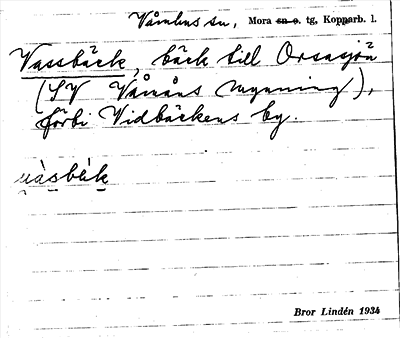 Våmhus sn, Mora sn o. tg, Kopparb. l.
Vassbäck, bäck till Orsasjön
(SV Våmåns mynning),
förbi Vidbäckens by.
u̯àsbä́k
Bror Lindén 1934